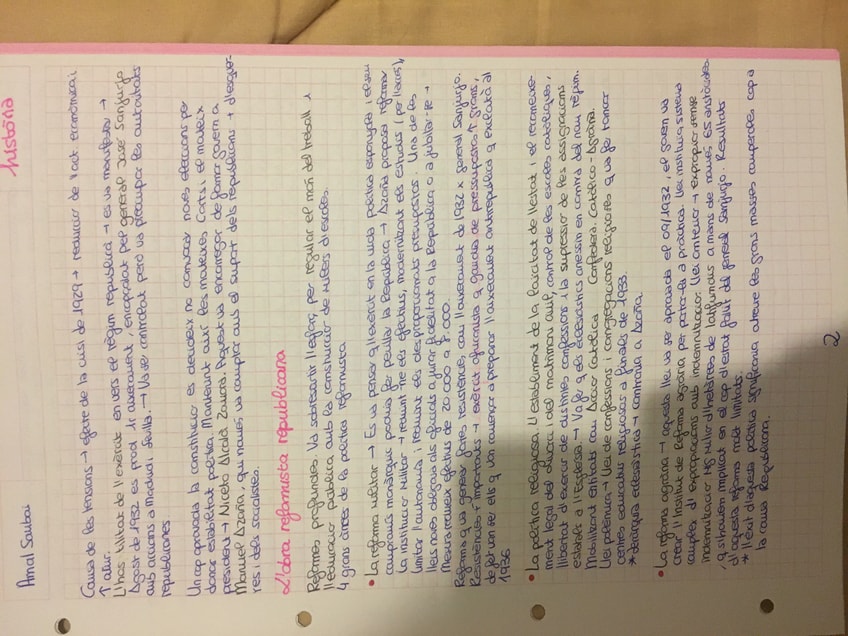 Amal Saubai
història
Causa de les tensions → efecte de la crisi de 1929 → reducció de l'act. econòmica i
↑ atur.
L'hostilitat de l'exèrcit envers el règim republicà → es va manifestar →
Agost de 1932 es prod. 1r aixecament, encapçalat pel general José Sanjurjo
amb accions a Madrid i Sevilla. → Va ser controlat però va preocupar les autoritats
republicanes.
Un cop aprovada la constitució es decideix no convocar noves eleccions per
donar estabilitat política. Mantenint així les mateixes Corts i el mateix
president → Niceto Alcalá Zamora. Aquest va encarregar de formar govern a
Manuel Azaña, qui només va comptar amb el suport dels republicans → d'esquer-
res i dels socialistes.
L'obra reformista republicana
Reformes profundes. Va sobresortir l'esforç per regular el món del treball x
l'educació pública amb la construcció de milers d'escoles.
4 grans àrees de la política reformista
• La reforma militar → Es va pensar q l'exèrcit en la vida política espanyola i el seu
compromís monàrquic podria fer perillar la República → Azaña proposà reformar
la institució militar → reduint-ne els efectius, modernitzant els estudis i per lleis,
limitar l'autonomia i reduint els desproporcionats pressupostos. Una de les
lleis noves obligava als oficials a jurar fidelitat a la República o a jubilar-se →
Mesura redueix efectius de 20 000 a 8 000.
Reforma q va generar fortes resistències, com l'aixecament de 1932 x general Sanjurjo.
Resistències + importants → exèrcit africanista q gaudia de pressupostos + grans,
de fet van ser ells q van començar a preparar l'aixecament antirepublicà q esclatà al
1936
• La política religiosa. L'establiment de la laïcitat de l'estat i el reconeixe-
ment legal del divorci i del matrimoni civil, control de les escoles catòliques,
llibertat d'exercir de distintes confessions i la supressió de les assignacions
estatals a l'església → Va fer q els eclesiàstics anessin en contra del nou règim.
Mobilitzant entitats com Acció Catòlica Confedera. Catòlico-Agrària.
Llei polèmica → Llei de confessions i congregacions religioses que fa tancar
centres educatius religiosos a finals de 1933.
* Jerarquia eclesiàstica → contrària a Azaña.
• La reforma agrària → aquesta llei va ser aprovada el 09/1932, el govern va
crear l'Institut de Reforma agrària per portar-la a pràctica. Llei instituïa sistema
complex d'expropiacions amb indemnització. Llei anterior → expropiar sense
indemnització mig milió d'hectàrees de latifundis a mans de només 65 aristòcrates
q s'havien implicat en el cop d'estat fallit del general Sanjurjo. Resultats
d'aquesta reforma molt limitats.
* L'èxit d'aquesta política significaria atreure les grans masses camperoles cap a
la causa Republicana.
2